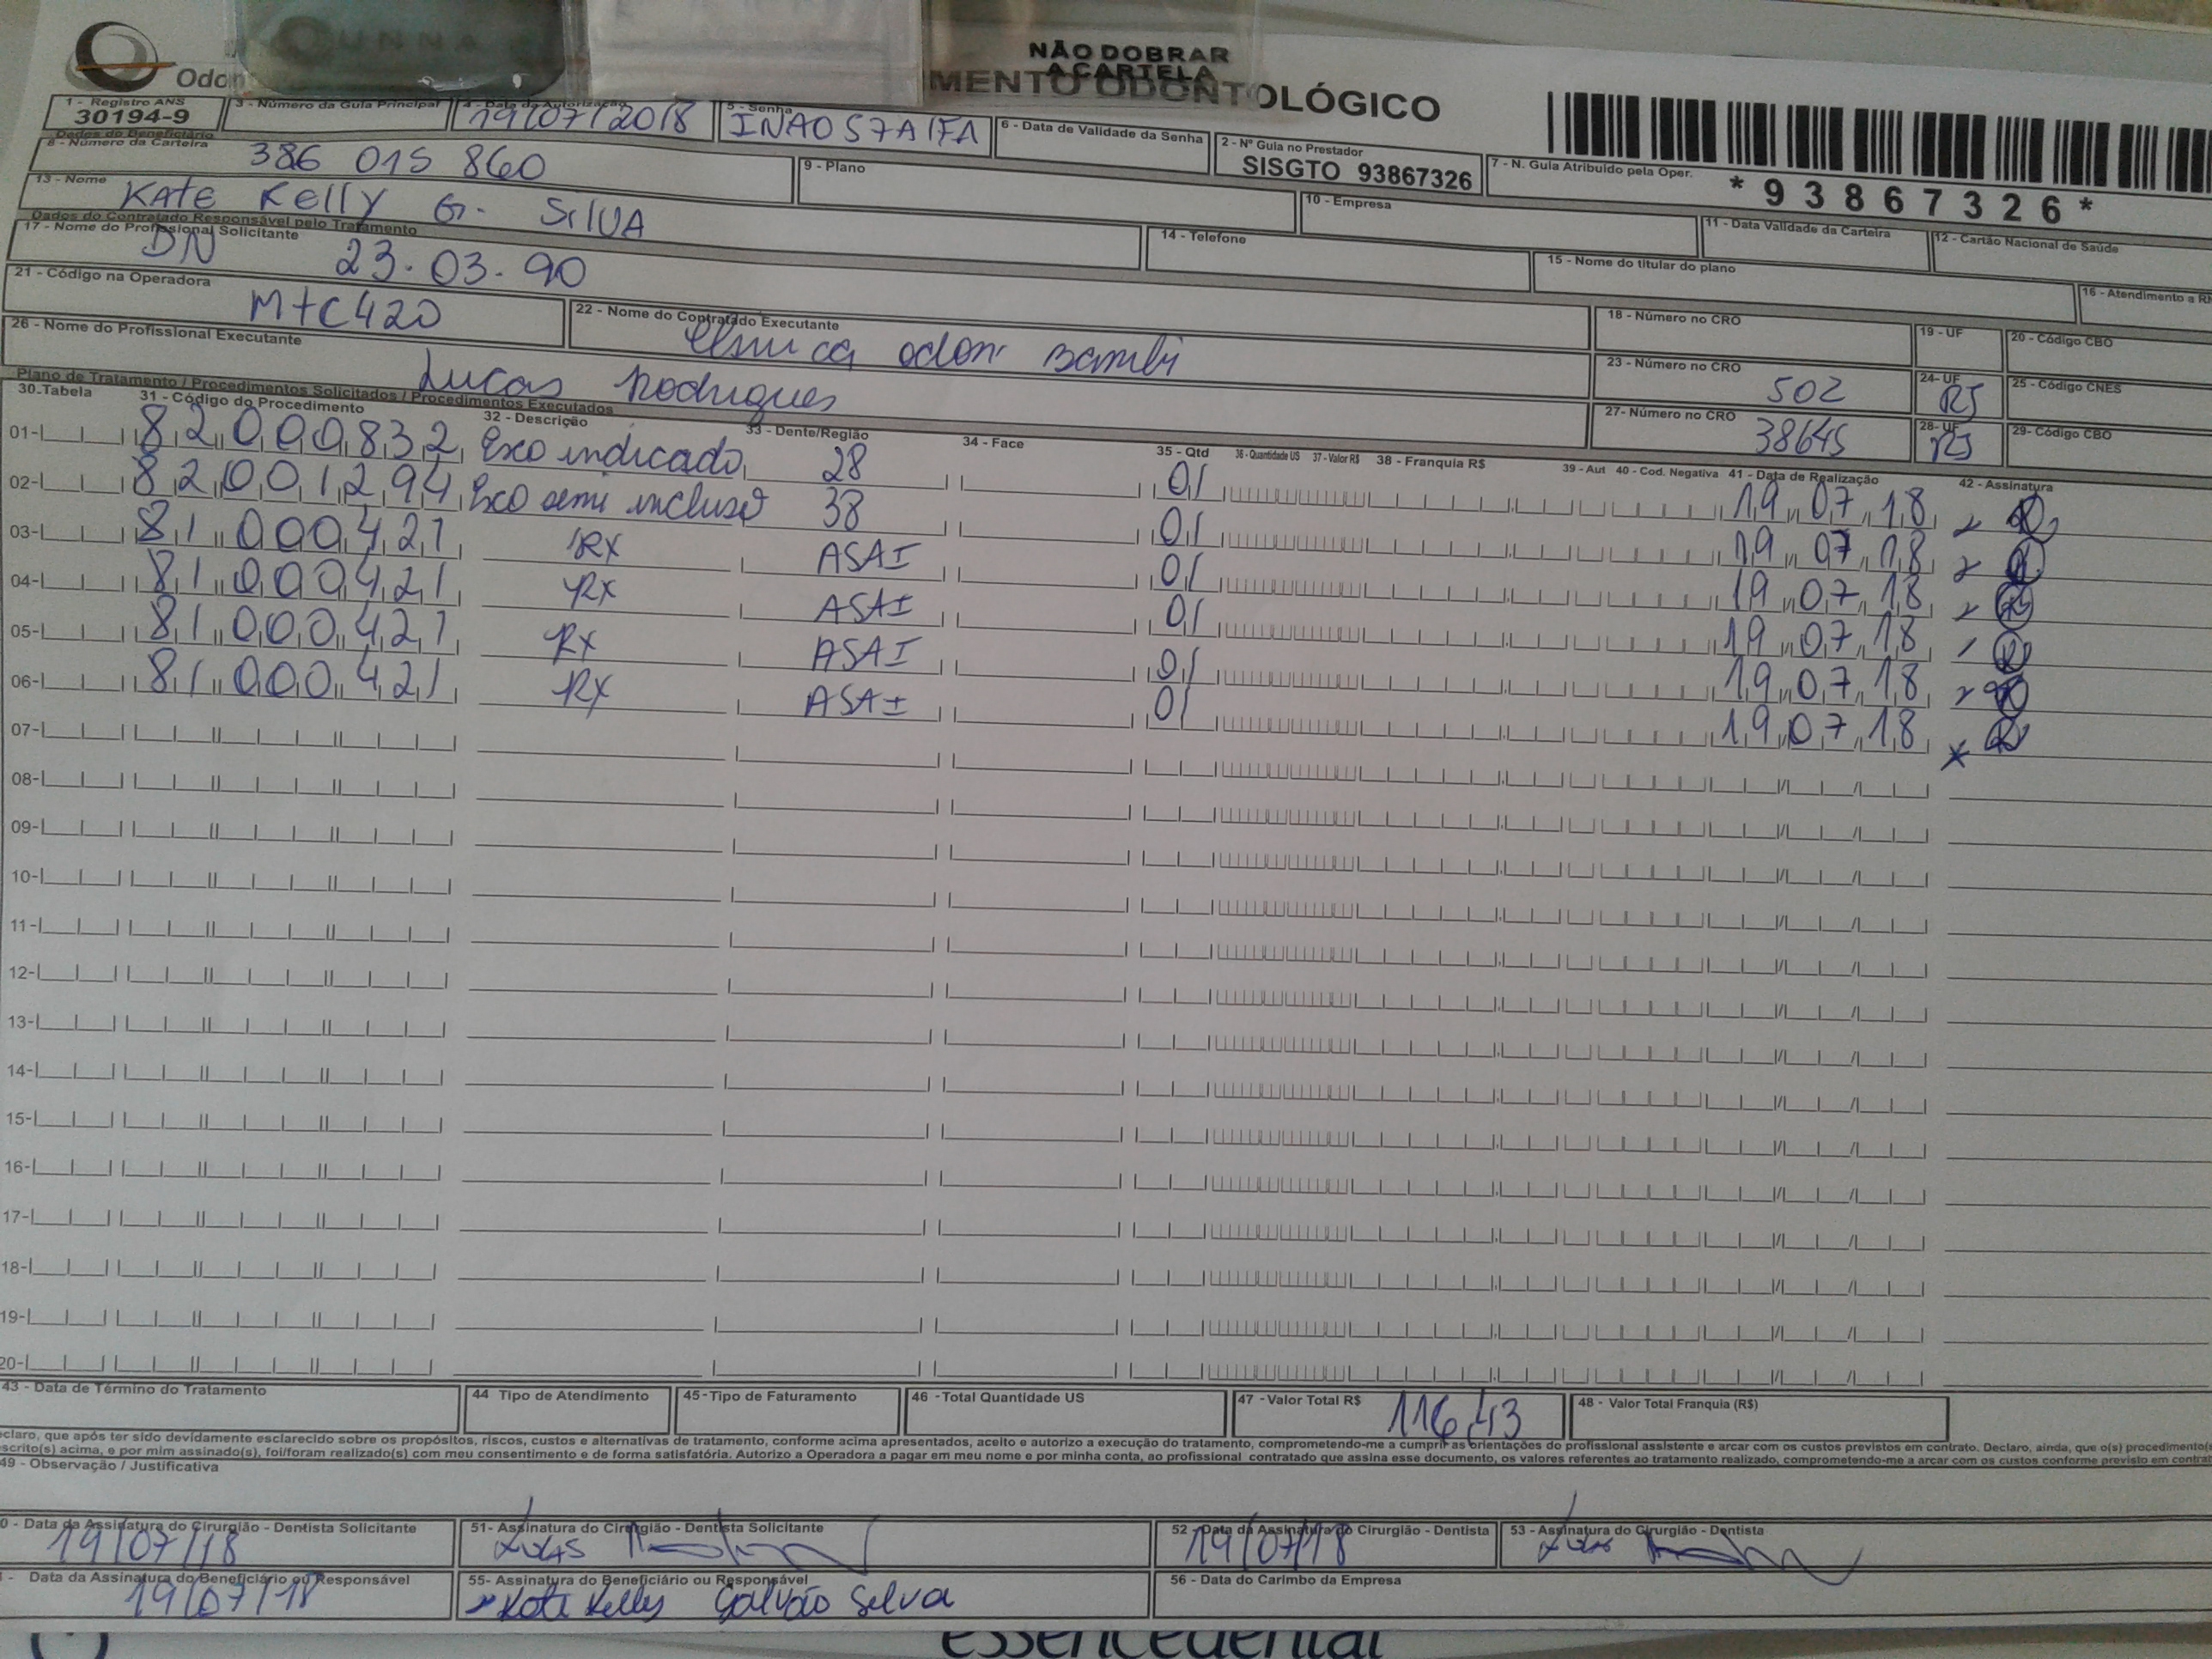 NÃO DOBRAR
A CARTELA
MENTO ODONTOLÓGICO
1 - Registro ANS
30194-9
3 - Número da Guia Principal
19/07/2018
5 - Senha
INAO57A1FA
6 - Data de Validade da Senha
2 - Nº Guia no Prestador
SISGTO 93867326
7 - N. Guia Atribuído pela Oper.
*93867326*
Dados do Beneficiário
8 - Número da Carteira
386 015 860
9 - Plano
10 - Empresa
11 - Data Validade da Carteira
12 - Cartão Nacional de Saúde
13 - Nome
Kate Kelly G. Silva
14 - Telefone
15 - Nome do titular do plano
16 - Atendimento a R
Dados do Contratado Responsável pelo Tratamento
17 - Nome do Profissional Solicitante
DN 23.03.90
18 - Número no CRO
19 - UF
20 - Código CBO
21 - Código na Operadora
MTC420
22 - Nome do Contratado Executante
23 - Número no CRO
502
24- UF
RJ
25 - Código CNES
26 - Nome do Profissional Executante
Lucas Rodrigues
27- Número no CRO
38645
28- UF
RJ
29- Código CBO
Plano de Tratamento / Procedimentos Solicitados / Procedimentos Executados
30.Tabela
31 - Código do Procedimento
32 - Descrição
33 - Dente/Região
34 - Face
35 - Qtd
36 - Quantidade US
37 - Valor R$
38 - Franquia R$
39 - Aut
40 - Cod. Negativa
41 - Data de Realização
42 - Assinatura
01- 82000832 Exo indicado 28 01 19 07 18
02- 82001294 Exo semi incluso 38 01 19 07 18
03- 81000421 RX ASAI 01 19 07 18
04- 81000421 RX ASAI 01 19 07 18
05- 81000421 RX ASAI 01 19 07 18
06- 81000421 RX ASAI 01 19 07 18
07-
08-
09-
10-
11-
12-
13-
14-
15-
16-
17-
18-
19-
20-
43 - Data de Término do Tratamento
44 Tipo de Atendimento
45 - Tipo de Faturamento
46 - Total Quantidade US
47 - Valor Total R$
116,43
48 - Valor Total Franquia (R$)
claro, que após ter sido devidamente esclarecido sobre os propósitos, riscos, custos e alternativas de tratamento, conforme acima apresentados, aceito e autorizo a execução do tratamento, comprometendo-me a cumprir as orientações do profissional assistente e arcar com os custos previstos em contrato. Declaro, ainda, que o(s) procedimento(s)
scrito(s) acima, e por mim assinado(s), foi/foram realizado(s) com meu consentimento e de forma satisfatória. Autorizo a Operadora a pagar em meu nome e por minha conta, ao profissional contratado que assina esse documento, os valores referentes ao tratamento realizado, comprometendo-me a arcar com os custos conforme previsto em contrat
49 - Observação / Justificativa
0 - Data da Assinatura do Cirurgião - Dentista Solicitante
19/07/18
51- Assinatura do Cirurgião - Dentista Solicitante
52 - Data da Assinatura do Cirurgião - Dentista
19/07/18
53 - Assinatura do Cirurgião - Dentista
Data da Assinatura do Beneficiário ou Responsável
19/07/18
55- Assinatura do Beneficiário ou Responsável
Kate Kelly Galvão Silva
56 - Data do Carimbo da Empresa